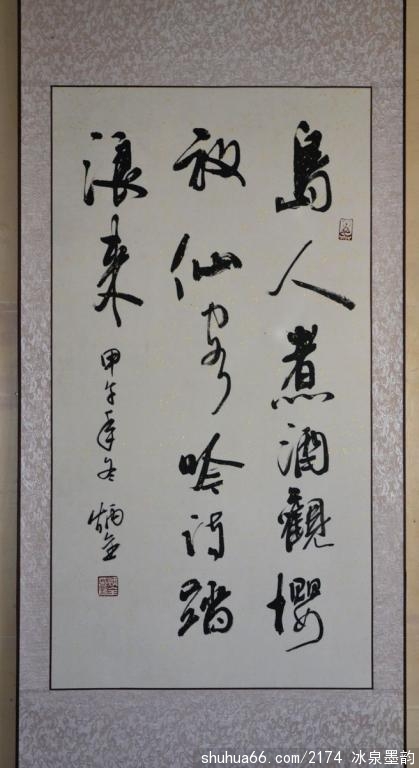 島人煮酒觀櫻
放仙客吟詩踏
浪來
甲午年冬 炳金
shuhua66.com/2174 冰泉墨韵